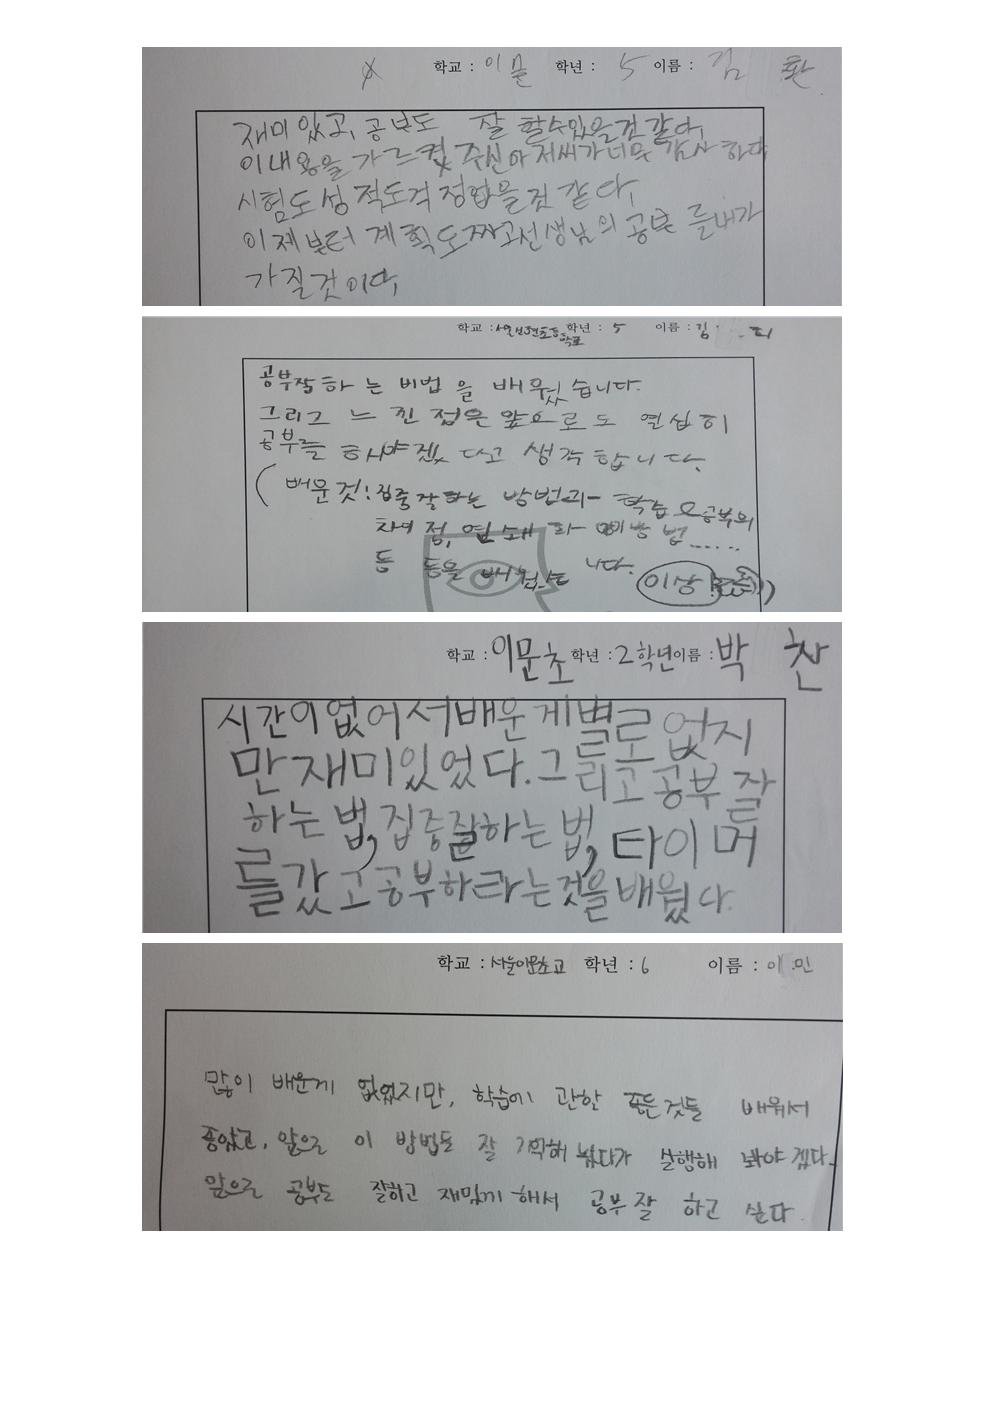 학교 : 이문 학년 : 5 이름 : 김 환
재미있고, 공부도 잘 할수있을것 같다,
이내용을 가르켰주신아저씨가너무 감사하다
시험도 성적도걱정없을것 같다,
이제부터 계획도짜고선생님의 공부를내가
가질것이다,
학교 : 학년 : 5 이름 : 김 희
공부잘하는 비법을 배웠습니다.
그리그 느낀점은 앞으로도 열심히
공부를 하야겠다고 생각합니다.
(배운것! 집중잘하는 방법과 학습
차이점, 방법......
등 등을 배웠습니다. 이상
학교 : 이문초 학년 : 2학년 이름 : 박 찬
시간이없어서배운게별로없지
만재미있었다.그리고공부잘
하는법,집중잘하는법,타이머
를갔고공부하라는것을배웠다.
학교 : 서울이문초교 학년 : 6 이름 : 이 민
많이 배운게 없었지만, 학습에 관한 모든것들 배워서
좋았고, 앞으로 이 방법도 잘 기억해 놨다가 실행해 봐야겠다.
앞으로 공부도 잘하고 재밌게 해서 공부잘 하고 싶다.